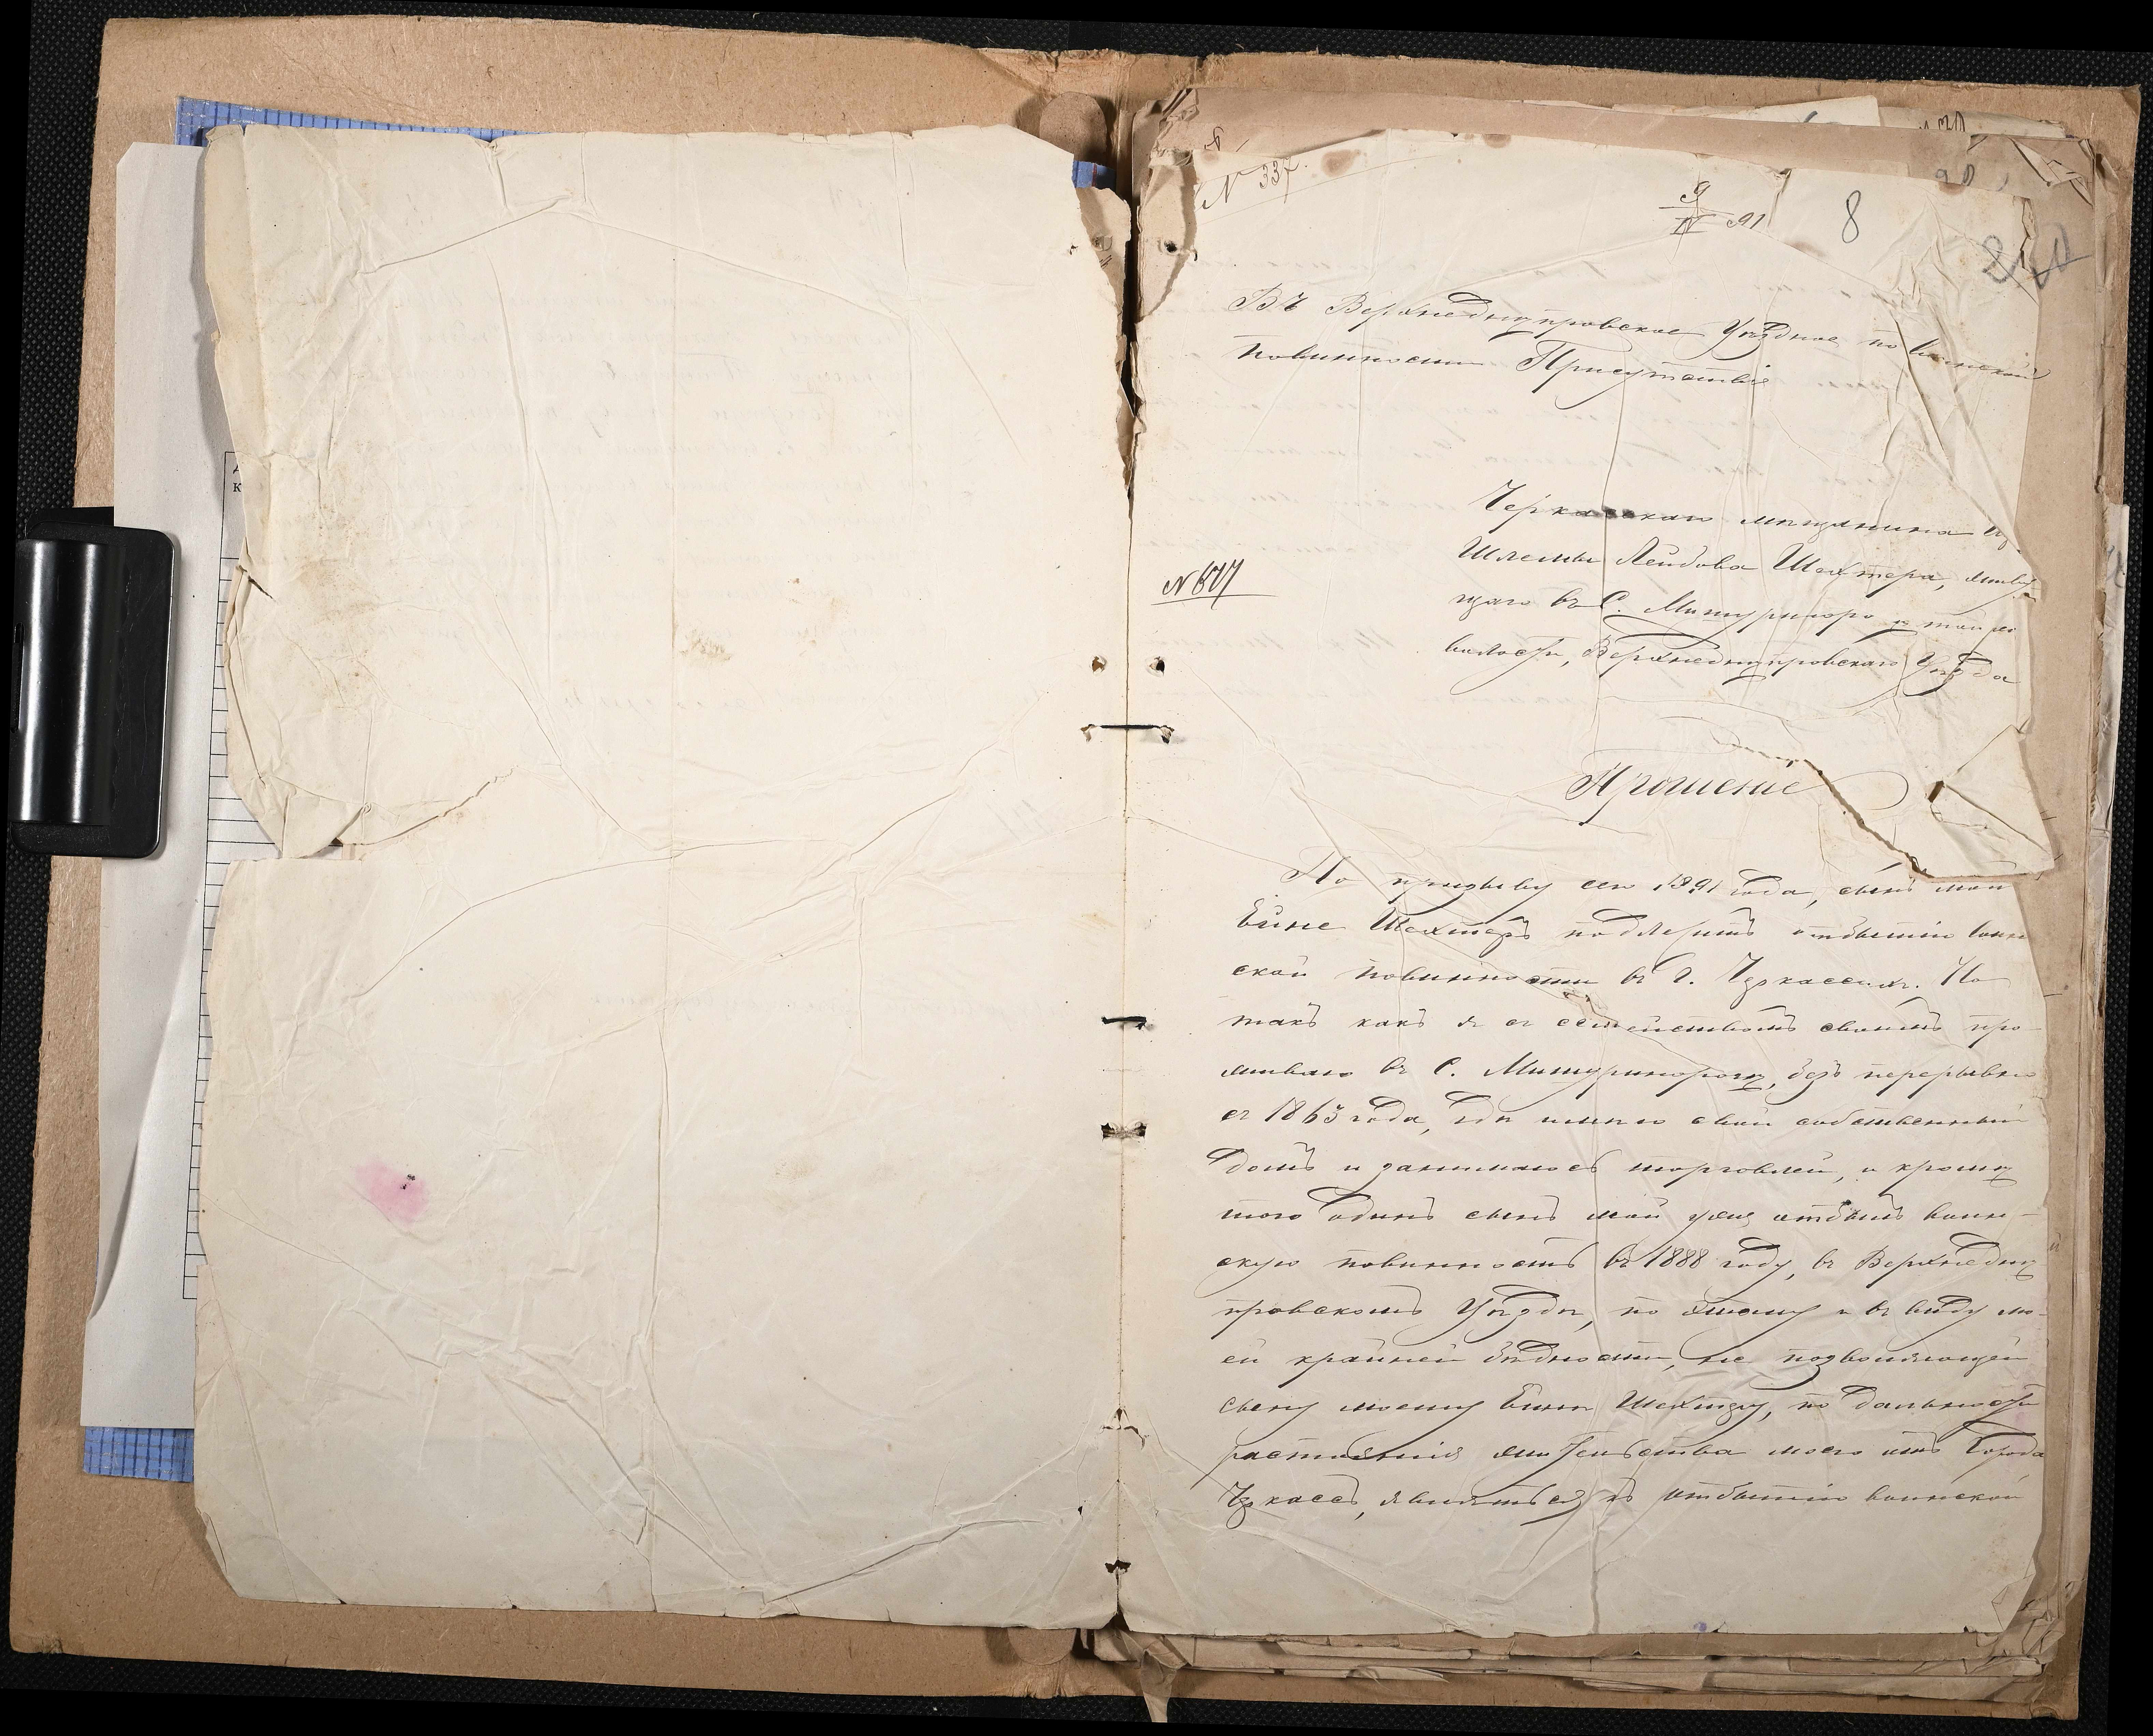 N 337.
9/IV 91
8
Въ Верхнеднѣпровское Уѣздное по воинской
повинности Присутствіе
Черкасскаго мѣщанина
Шлемы Лейбова Шехтера, живу-
N 677
щаго въ С. Мишуриноро
волости, Верхнеднѣпровскаго Уѣзда
Прошеніе
По призыву сего 1891 года, сынъ мой
Ейне Шехтеръ подлежитъ отбытію воин
ской повинности въ г. Черкассахъ. Но
такъ какъ я съ семействомъ своимъ про
живаю въ С. Мишуринорогѣ, безъ перерывно
съ 1863 года, гдѣ имѣю свой собственный
домъ и занимаюсь торговлей, и кромѣ
того одинъ сынъ мой уже отбылъ воин-
скую повинность въ 1888 году, въ Верхнеднѣ
провскомъ Уѣздѣ, по этому и въ виду мо-
ей крайней бѣдности, не позволяющей
сыну моему Ейнѣ Шехтеру, по дальности
растоянія жительства моего отъ города
Черкассъ, явиться къ отбытію воинской